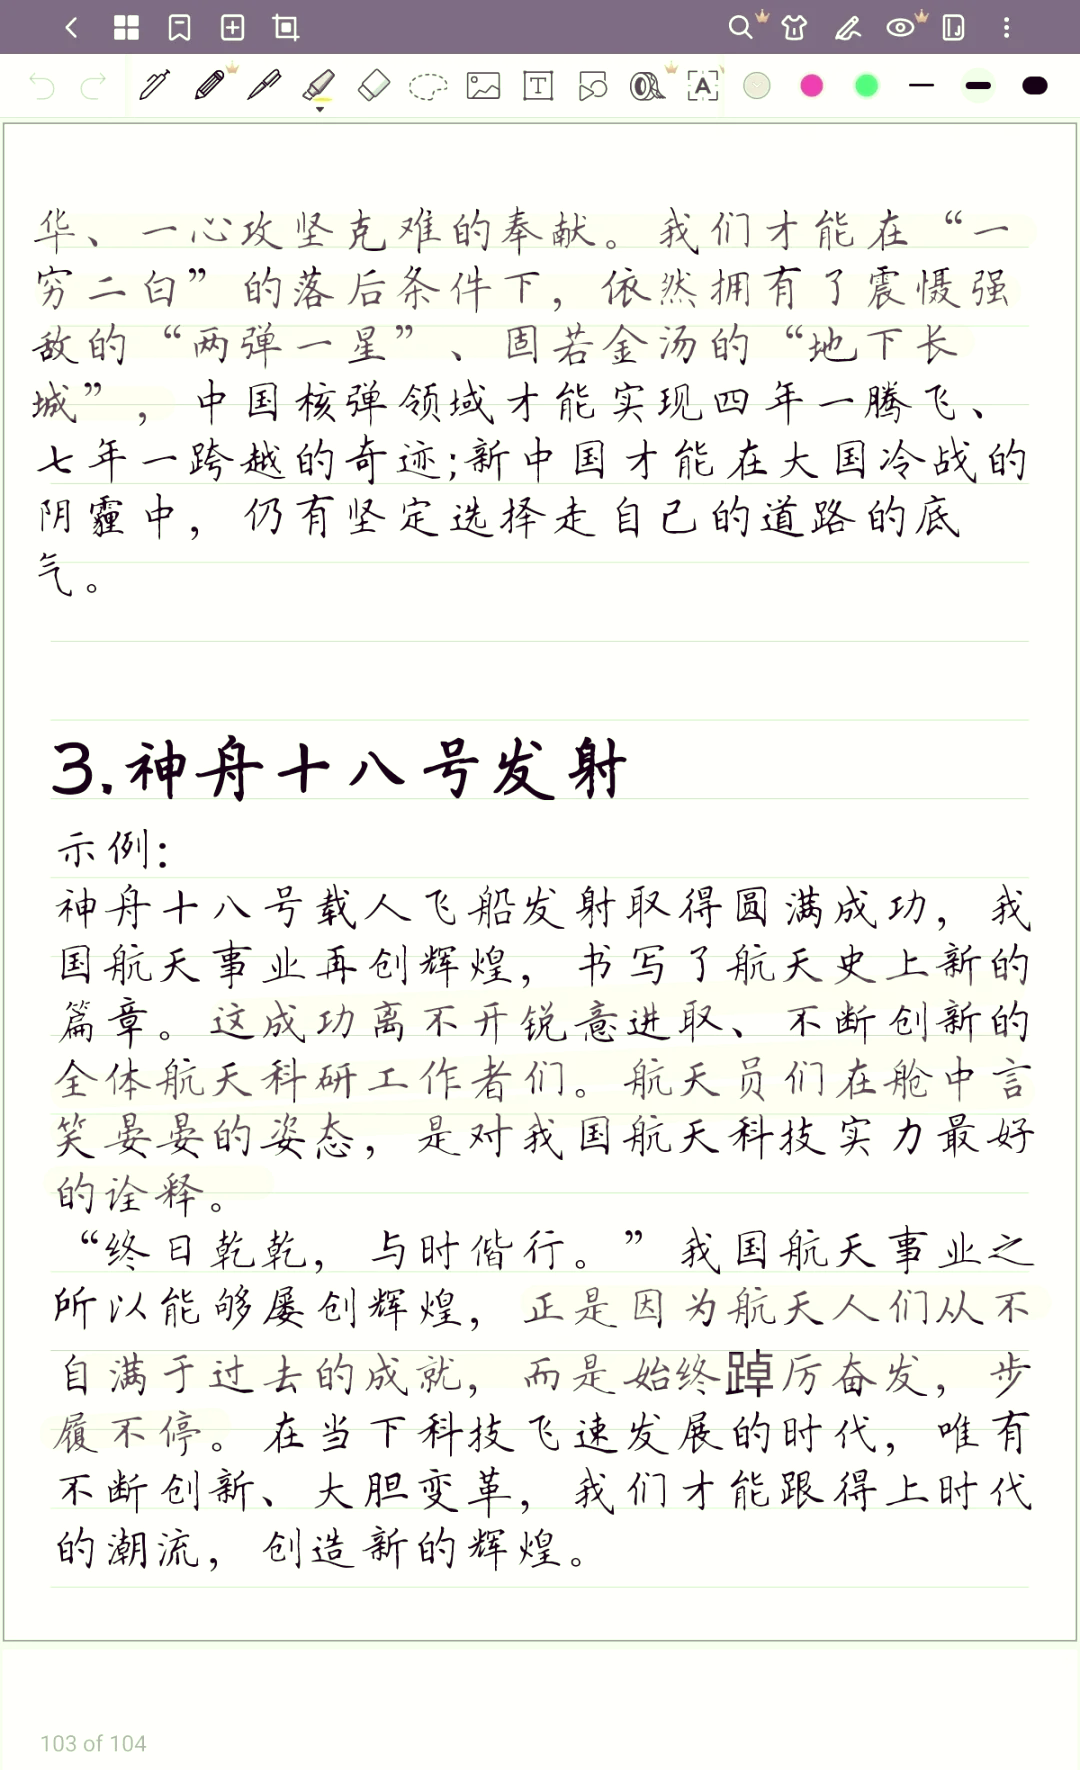 华、一心攻坚克难的奉献。我们才能在“一
穷二白”的落后条件下，依然拥有了震慑强
敌的“两弹一星”、固若金汤的“地下长
城”，中国核弹领域才能实现四年一腾飞、
七年一跨越的奇迹;新中国才能在大国冷战的
阴霾中，仍有坚定选择走自己的道路的底
气。
3.神舟十八号发射
示例：
神舟十八号载人飞船发射取得圆满成功，我
国航天事业再创辉煌，书写了航天史上新的
篇章。这成功离不开锐意进取、不断创新的
全体航天科研工作者们。航天员们在舱中言
笑晏晏的姿态，是对我国航天科技实力最好
的诠释。
“终日乾乾，与时偕行。”我国航天事业之
所以能够屡创辉煌，正是因为航天人们从不
自满于过去的成就，而是始终踔厉奋发，步
履不停。在当下科技飞速发展的时代，唯有
不断创新、大胆变革，我们才能跟得上时代
的潮流，创造新的辉煌。
103 of 104